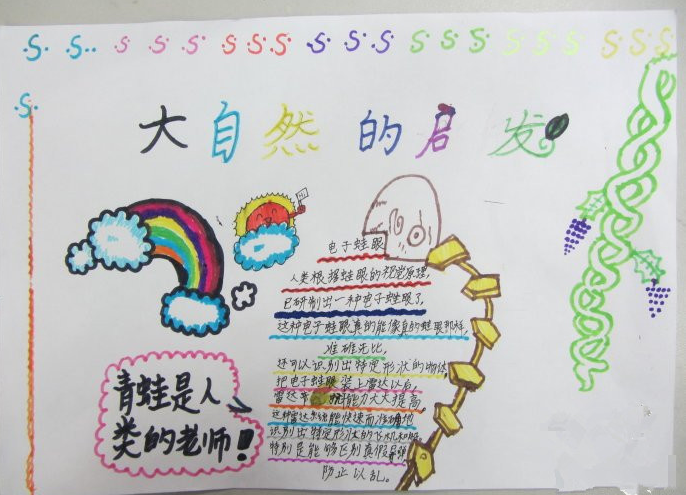 .S. .S.. .S. .S. .S. .S. .S. .S. .S. .S. .S. .S. .S. .S. .S. .S. .S. .S. .S. .S.
.S.
大自然的启发
电子蛙眼
人类根据蛙眼的视觉原理,
已研制出一种电子蛙眼了。
这种电子蛙眼真的能像真的蛙眼那样,
准确无比。
还可以识别出特定形状的物体,
把电子蛙眼装上雷达以后,
雷达 能力大大提高,
这种雷达系统能快速而准确地
识别出特定形状的飞机和
特别是能够区别真假
防止以乱。
青蛙是人
类的老师!